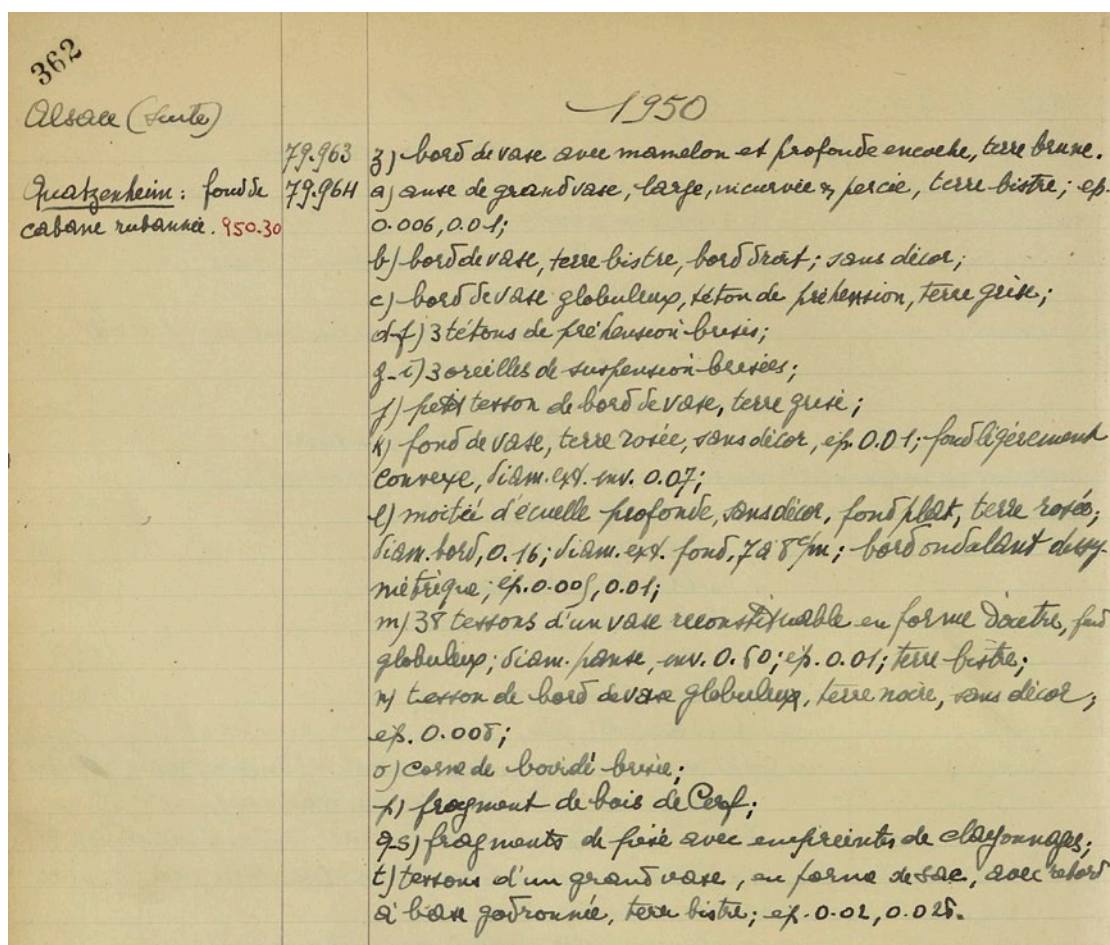 362
Alsace (suite)
1950
79.963 z) bord de vase avec mamelon et profonde encoche, terre brune.
Quatzenheim : fond de 79.964 a) anse de grand vase, large, incurvée & percée, terre bistre; ep.
cabane rubannée. 950.30 0.006, 0.01;
b) bord de vase, terre bistre, bord droit; sans décor;
c) bord de vase globuleux, téton de préhension, terre grise;
d-f) 3 tétons de préhension brisés;
g-i) 3 oreilles de suspension brisées;
j) petit tesson de bord de vase, terre grise;
k) fond de vase, terre rosée, sans décor, ép. 0.01; fond légèrement
convexe, diam. ext. env. 0.07;
l) moitié d'écuelle profonde, sans décor, fond plat, terre rosée;
diam. bord, 0.16; diam. ext. fond, 7 à 8 c/m; bord ondulant dissy-
métrique; ép. 0.005, 0.01;
m) 38 tessons d'un vase reconstituable en forme d'outre, fond
globuleux; diam. panse, env. ép. 0.01; terre bistre;
n) tesson de bord de vase globuleux, terre noire, sans décor;
ép.
o) corne de bovidé brisée;
p) fragment de bois de Cerf;
q-s) fragments de pisé avec empreintes de clayonnages;
t) tessons d'un grand vase, en forme de sac, avec rebord
à base godronnée, terre bistre; ep. 0.02, 0.025.